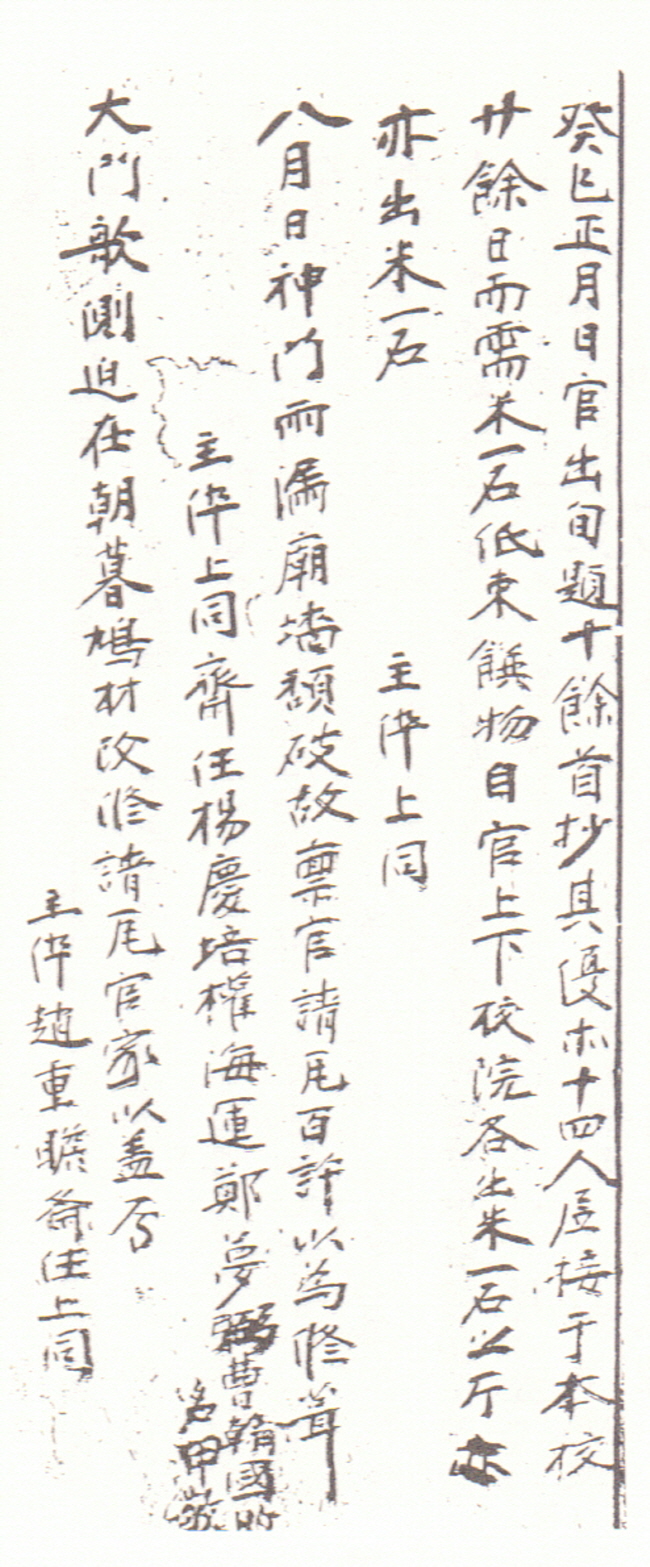 癸巳正月日官出旬題十餘首抄其優等十四人居接于本校
廿餘日而需米一石低束饌物自官上下校院各出米一石公厅
亦出米一石
主倅上同
八月日神門雨漏廟墻頹破故稟官請瓦百許以為修葺
主倅上同齋任楊慶培權海運鄭夢弼曹翰國
大門欹側迫在朝暮鳩材改修請瓦官家以盖焉
主倅趙重瞻齋任上同